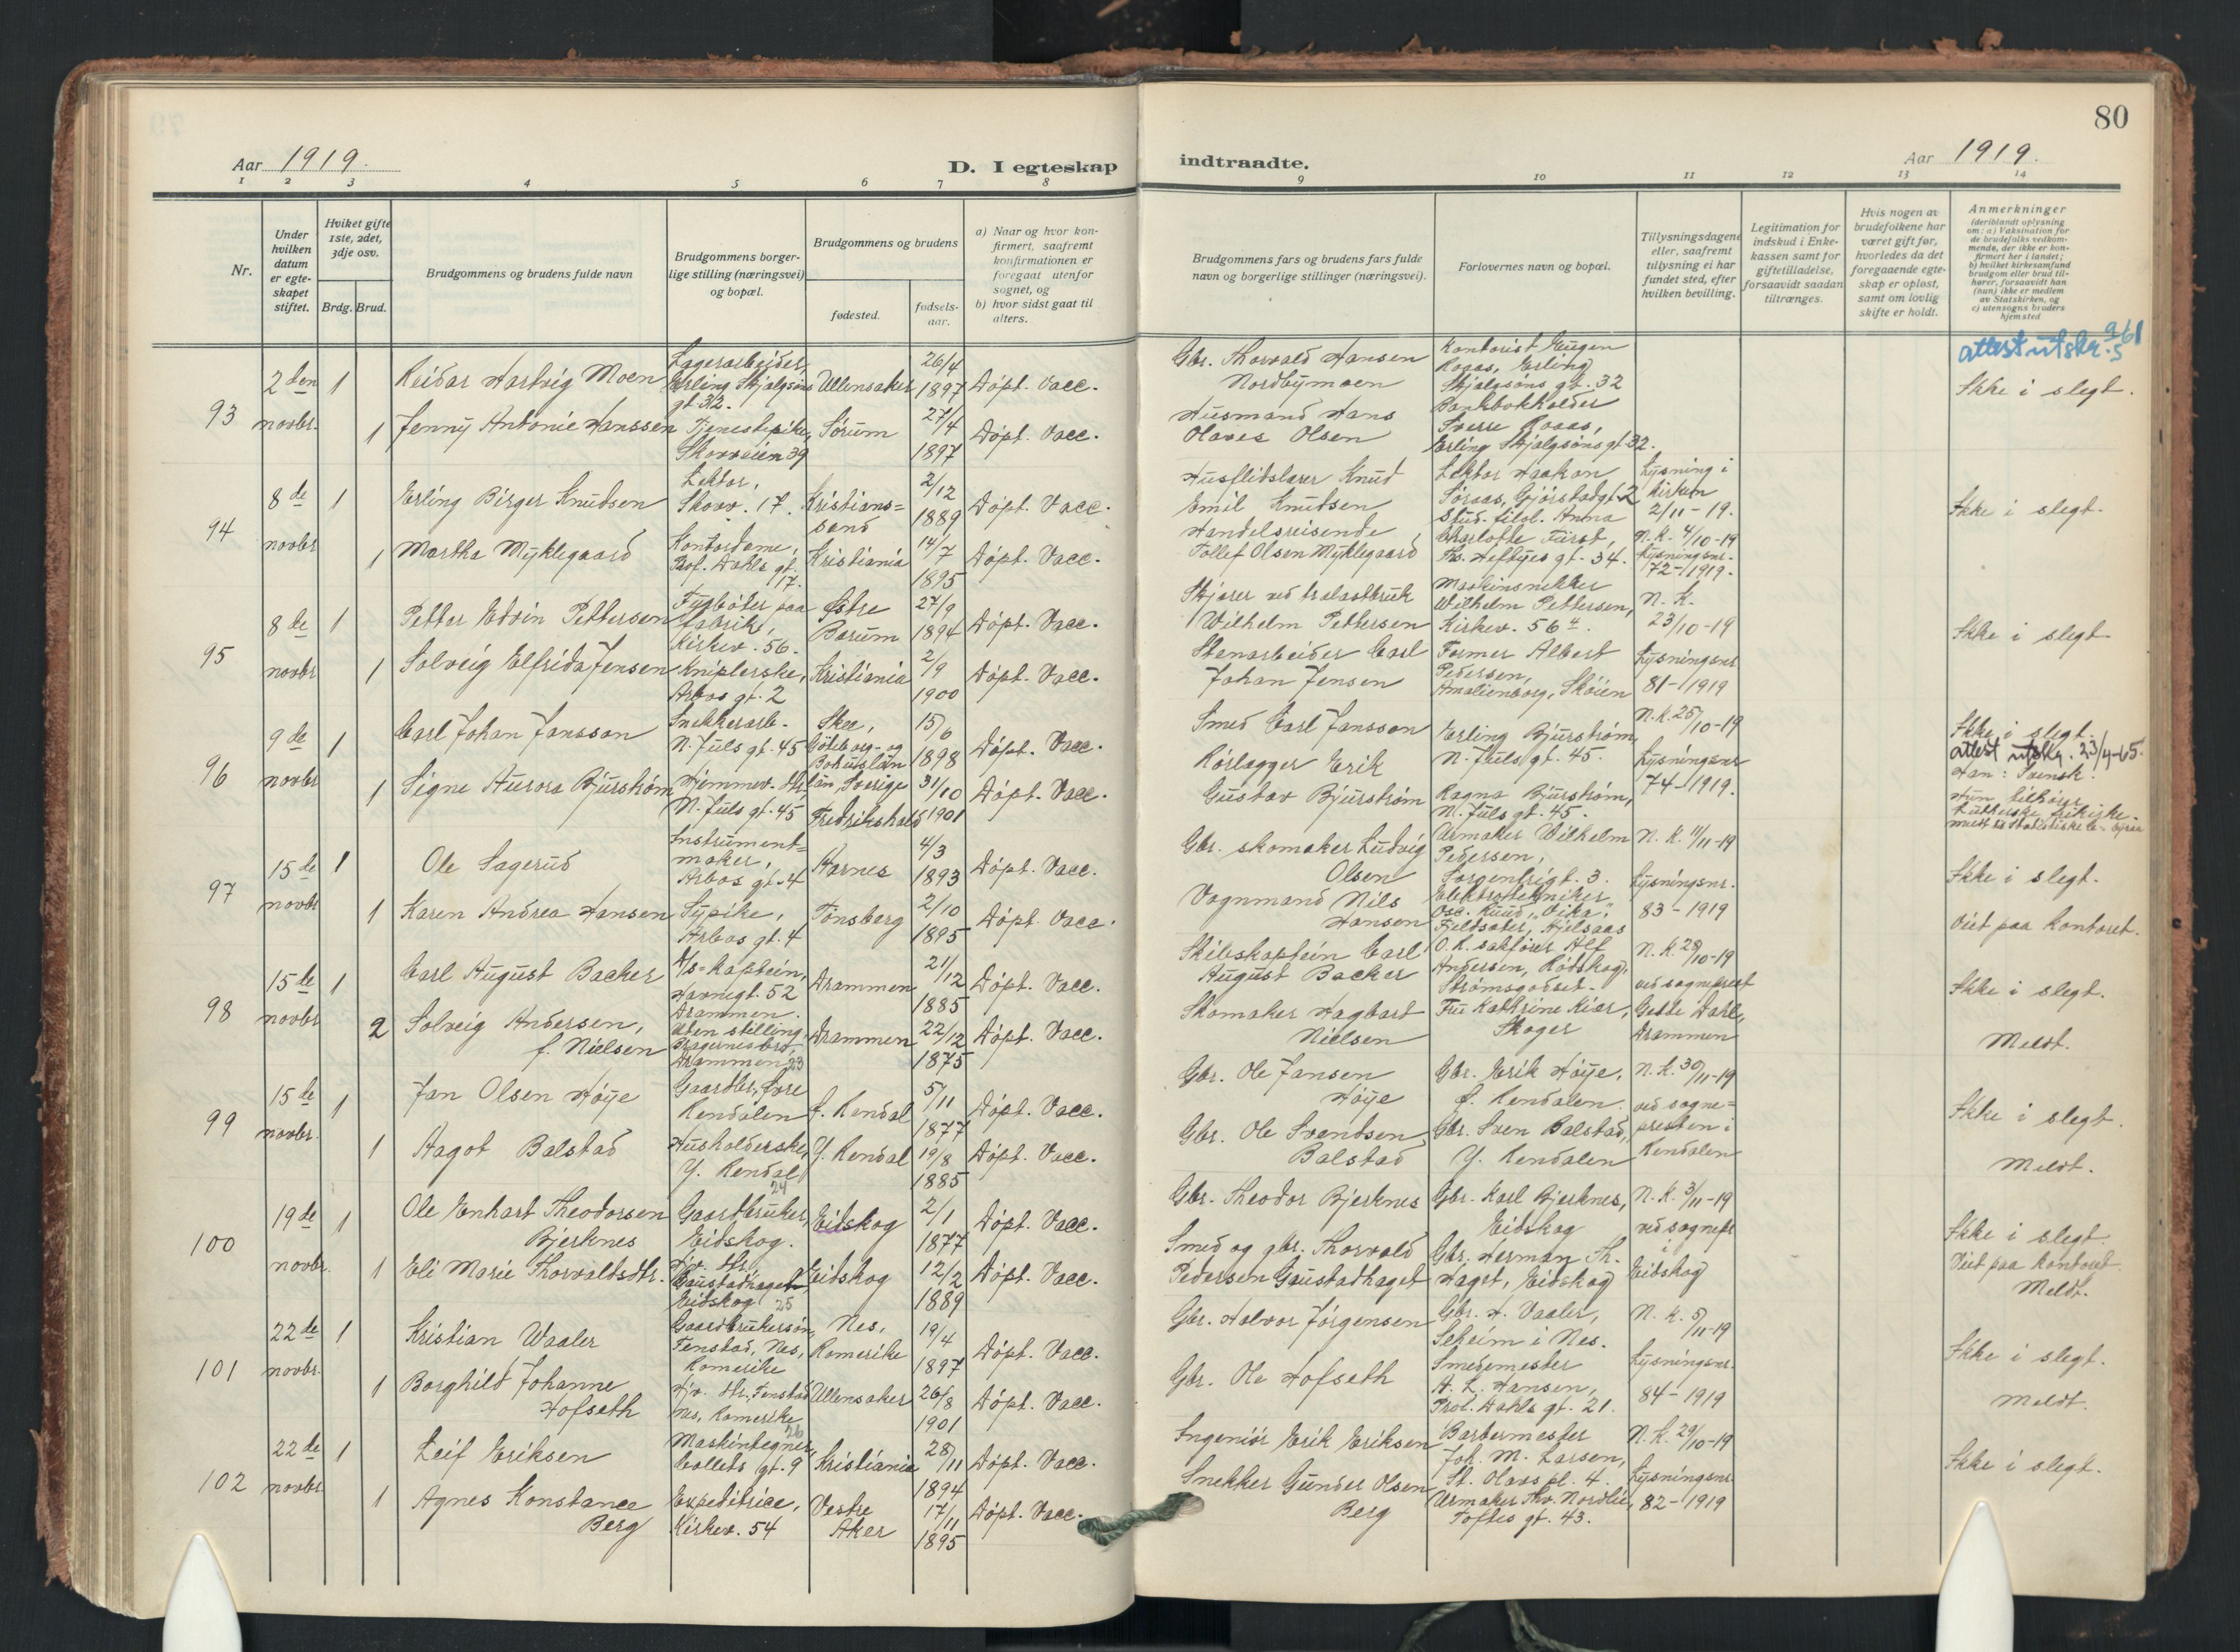 80
Aar 1919.
D. I egteskap
indtraadte.
Aar 1919.
1 2 3 4 5 6 7 8 9 10 11 12 13 14
Nr.
Under hvilken datum er egteskapet stiftet.
Hvilket gifte 1ste, 2det, 3dje osv.
Brdg. Brud.
Brudgommens og brudens fulde navn
Brudgommens borgerlige stilling (næringsvei) og bopæl.
Brudgommens og brudens
fødested.
fødselsaar.
a) Naar og hvor konfirmert, saafremt konfirmationen er foregaat utenfor sognet, og
b) hvor sidst gaat til alters.
Brudgommens fars og brudens fars fulde navn og borgerlige stillinger (næringsvei).
Forlovernes navn og bopæl.
Tillysningsdagene eller, saafremt tillysning ei har fundet sted, efter hvilken bevilling.
Legitimation for indskud i Enkekassen samt for giftetilladelse, forsaavidt saadan tiltrænges.
Hvis nogen av brudefolkene har været gift før, hvorledes da det foregaaende egteskap er opløst, samt om lovlig skifte er holdt.
Anmerkninger
(deriblandt oplysning om: a) Vaksination for de brudefolks vedkommende, der ikke er konfirmert her i landet; b) hvilket kirkesamfund brudgom eller brud tilhører, forsaavidt han (hun) ikke er medlem av Statskirken, og c) utensogns bruders hjemsted
93
2den novbr.
1 Reidar Hartvig Moen
Lagerarbeider, Erling Skjalgsøns gt. 32.
Ullensaker
26/4 1897
Døpt. Vacc.
Gbr. Thorvald Hansen Nordbymoen
Kontorist Eugen Roaas, Erling Skjalgsøns gt. 32
attest utskr. 9/5 61
Ikke i slegt.
1 Jenny Antonie Hanssen
Tjenestepike, Skovveien 39
Sørum
27/4 1897
Døpt. Vacc.
Husmand Hans Olaves Olsen
Bankbokholder Sverre Roaas, Erling Skjalgsøns gt. 32.
94
8de novbr
1 Erling Birger Knudsen
Lektor, Skovv. 17.
Kristianssand
2/12 1889
Døpt. Vacc.
Husflidslærer Knud Emil Knudsen
Lektor Haakon Søraas, Gjørstadgt. 2
Lysning i kirken 2/11-19.
Ikke i slegt.
1 Martha Myklegaard
Kontordame, Prof. Dahls gt. 17.
Kristiania
14/7 1895
Døpt. Vacc.
Handelsreisende Tollef Olsen Myklegaard
Stud. filol. Anna Charlotte Fürst, Th. Heftyes gt. 34.
N.K. 4/10-19 Lysningsnr. 72-1919.
95
8de novbr
1 Petter Edvin Pettersen
Fyrbøter paa fabrik, Kirkev. 56.
Østre Bærum
27/9 1894
Døpt. Vacc.
Skjærer ved trælastbruk Wilhelm Pettersen
Maskinsnekker Wilhelm Pettersen, Kirkev. 56 4.
N.K. 23/10-19
Ikke i slegt
1 Solveig Elfrida Jensen
Kniplerske, Arbos gt. 2
Kristiania
2/9 1900
Døpt. Vacc.
Stenarbeider Carl Johan Jensen
Former Albert Pedersen, Amalienborg, Skøien
Lysningsnr 81-1919
96
9de novbr
1 Carl Johan Jansson
Snekkerarb. N. Juels gt. 45
Skee, Göteborg- og Bohuslän län, Sverige
15/6 1898
Døpt. Vacc.
Smed Carl Jansson
Erling Bjurstrøm, N. Juels gt. 45.
N.K. 25/10-19
Ikke i slegt.
attest utskr. 23/4-65.
Han: Svensk.
1 Signe Aurora Bjurstrøm
Hjemmev. dtr, N. Juels gt. 45
Fredrikshald
31/10 1901
Døpt. Vacc.
Rørlægger Erik Gustav Bjurstrøm
Ragna Bjurstrøm, N. Juels gt. 45.
Lysningsnr 74-1919.
Hun tilhører Lutherske frikirke.
97
15de novbr
1 Ole Sagerud
Instrumentmaker, Arbos gt. 4
Aarnes
4/3 1893
Døpt. Vacc.
Gbr. skomaker Ludvig Olsen
Urmaker Wilhelm Pedersen, Sorgenfrigt. 3.
N.K. 11/11-19
Ikke i slegt.
1 Karen Andrea Hansen
Sypike, Arbos gt. 4
Tønsberg
2/10 1895
Døpt. Vacc.
Vognmand Nils Hansen
Elektrotekniker Osc. Ruud, "Vika", Fjeldsæter, Hjelsaas
Lysningsnr. 83-1919
Viet paa kontoret.
98
15de novbr
1 Carl August Backer
D/s-kaptein, Havnegt. 52 Drammen.
Drammen
21/12 1885
Døpt. Vacc.
Skibskaptein Carl August Backer
O.R. sakfører Alf Andersen, Rødskog, Strømsgodset.
N.K. 28/10-19 ved sogneprest
Ikke i slegt.
2 Solveig Andersen, f. Nielsen
Uten stilling, Bragernesbro, Drammen 23
Drammen
22/12 1875
Døpt. Vacc.
Skomaker Hagbart Nielsen
Fru Kathrine Kiær, Skoger
Gette Dahl, Drammen
Meldt.
99
15de novbr.
1 Jan Olsen Høye
Gaardbr., Øvre Rendalen
Ø. Rendal
5/11 1877
Døpt. Vacc.
Gbr. Ole Jansen Høye
Gbr. Erik Høye, Ø. Rendalen.
N.K. 30/11-19 ved sogne-
Ikke i slegt.
1 Aagot Balstad
Husholderske, Y. Rendal 24
Y. Rendal
19/8 1885
Døpt. Vacc.
Gbr. Ole Svendsen Balstad
Gbr. Sven Balstad, Y. Rendalen
presten i Rendalen
Meldt.
100
19de novbr.
1 Ole Enhart Theodorsen Bjerknes
Gaardbruker, Eidskog.
Eidskog
2/1 1877
Døpt. Vacc.
Gbr. Theodor Bjerknes
Gbr. Karl Bjerknes, Eidskog
N.K. 3/11-19 ved sognepr
Ikke i slegt.
1 Eli Marie Thorvaldsdtr.
Hjv. dtr, Gaustadhaget, Eidskog 25
Eidskog
12/2 1889
Døpt. Vacc.
Smed og gbr. Thorvald Pedersen Gaustadhaget
Gbr. Herman Th. Haget, Eidskog
i Eidskog
Viet paa kontoret.
Meldt.
101
22de novbr.
1 Kristian Waaler
Gaardbrukersøn, Fenstad, Nes, Romerike
Nes, Romerike
19/4 1897
Døpt. Vacc.
Gbr. Halvor Jørgensen
Gbr. H. Vaaler, Seheim i Nes.
N.K. 5/11-19
Ikke i slegt.
1 Borghild Johanne Hofseth
Hjv. dtr, Fenstad Nes, Romerike 26
Ullensaker
26/8 1901
Døpt. Vacc.
Gbr. Ole Hofseth
Smedemester A. L. Hansen, Prof. Dahls gt. 21.
Lysningsnr. 84-1919
Meldt.
102
22de novbr
1 Leif Eriksen
Maskintegner, Colletts gt. 9
Kristiania
28/11 1894
Døpt. Vacc.
Ingeniør Erik Eriksen
Barbermester Joh. M. Larsen, St. Olavs pl. 4.
N.K. 29/10-19
Ikke i slegt.
1 Agnes Konstance Berg
Expeditrice, Kirkev. 54
Vestre Aker
17/11 1895
Døpt. Vacc.
Snekker Gunder Olsen Berg
Urmaker Thv. Nordlie, Toftes gt. 43.
Lysningsnr 82-1919